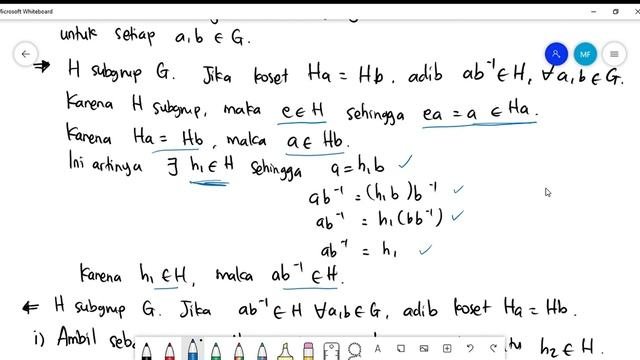 Microsoft Whiteboard
untuk setiap a,b ∈ G.
⇒ H subgrup G. Jika koset Ha = Hb. adib ab⁻¹ ∈ H, ∀a,b ∈ G.
Karena H subgrup, maka e ∈ H sehingga ea = a ∈ Ha.
Karena Ha = Hb, maka a ∈ Hb.
Ini artinya ∃ h₁ ∈ H sehingga a = h₁b ✓
ab⁻¹ = (h₁b)b⁻¹ ✓
ab⁻¹ = h₁(bb⁻¹) ✓
ab⁻¹ = h₁ ✓
Karena h₁ ∈ H, maka ab⁻¹ ∈ H.
⇐ H subgrup G. Jika ab⁻¹ ∈ H ∀a,b ∈ G, adib koset Ha = Hb.
i) Ambil h₂ ∈ H.
MF